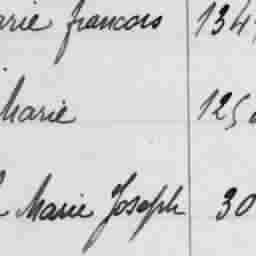 arie francois 134
Marie 125
Marie Joseph 30